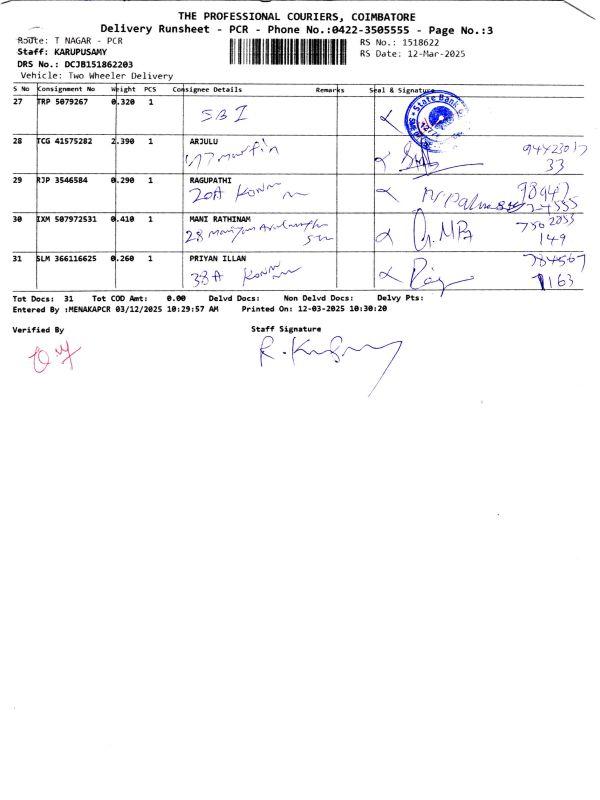 THE PROFESSIONAL COURIERS, COIMBATORE
Delivery Runsheet - PCR - Phone No.:0422-3505555 - Page No.:3
Route: T NAGAR - PCR
RS No.: 1518622
Staff: KARUPUSAMY
RS Date: 12-Mar-2025
DRS No.: DCJB151862203
Vehicle: Two Wheeler Delivery
S No Consignment No Weight PCS Consignee Details Remarks Seal & Signature
27 TRP 5079267 0.320 1
SBI
State Bank
28 TCG 41575282 2.390 1 ARJULU
33
29 RJP 3546584 0.290 1 RAGUPATHI
20A
30 IXM 507972531 0.410 1 MANI RATHINAM
28
149
31 SLM 366116625 0.260 1 PRIYAN ILLAN
38A
784567
1163
Tot Docs: 31 Tot COD Amt: 0.00 Delvd Docs: Non Delvd Docs: Delvy Pts:
Entered By :MENAKAPCR 03/12/2025 10:29:57 AM Printed On: 12-03-2025 10:30:20
Verified By Staff Signature